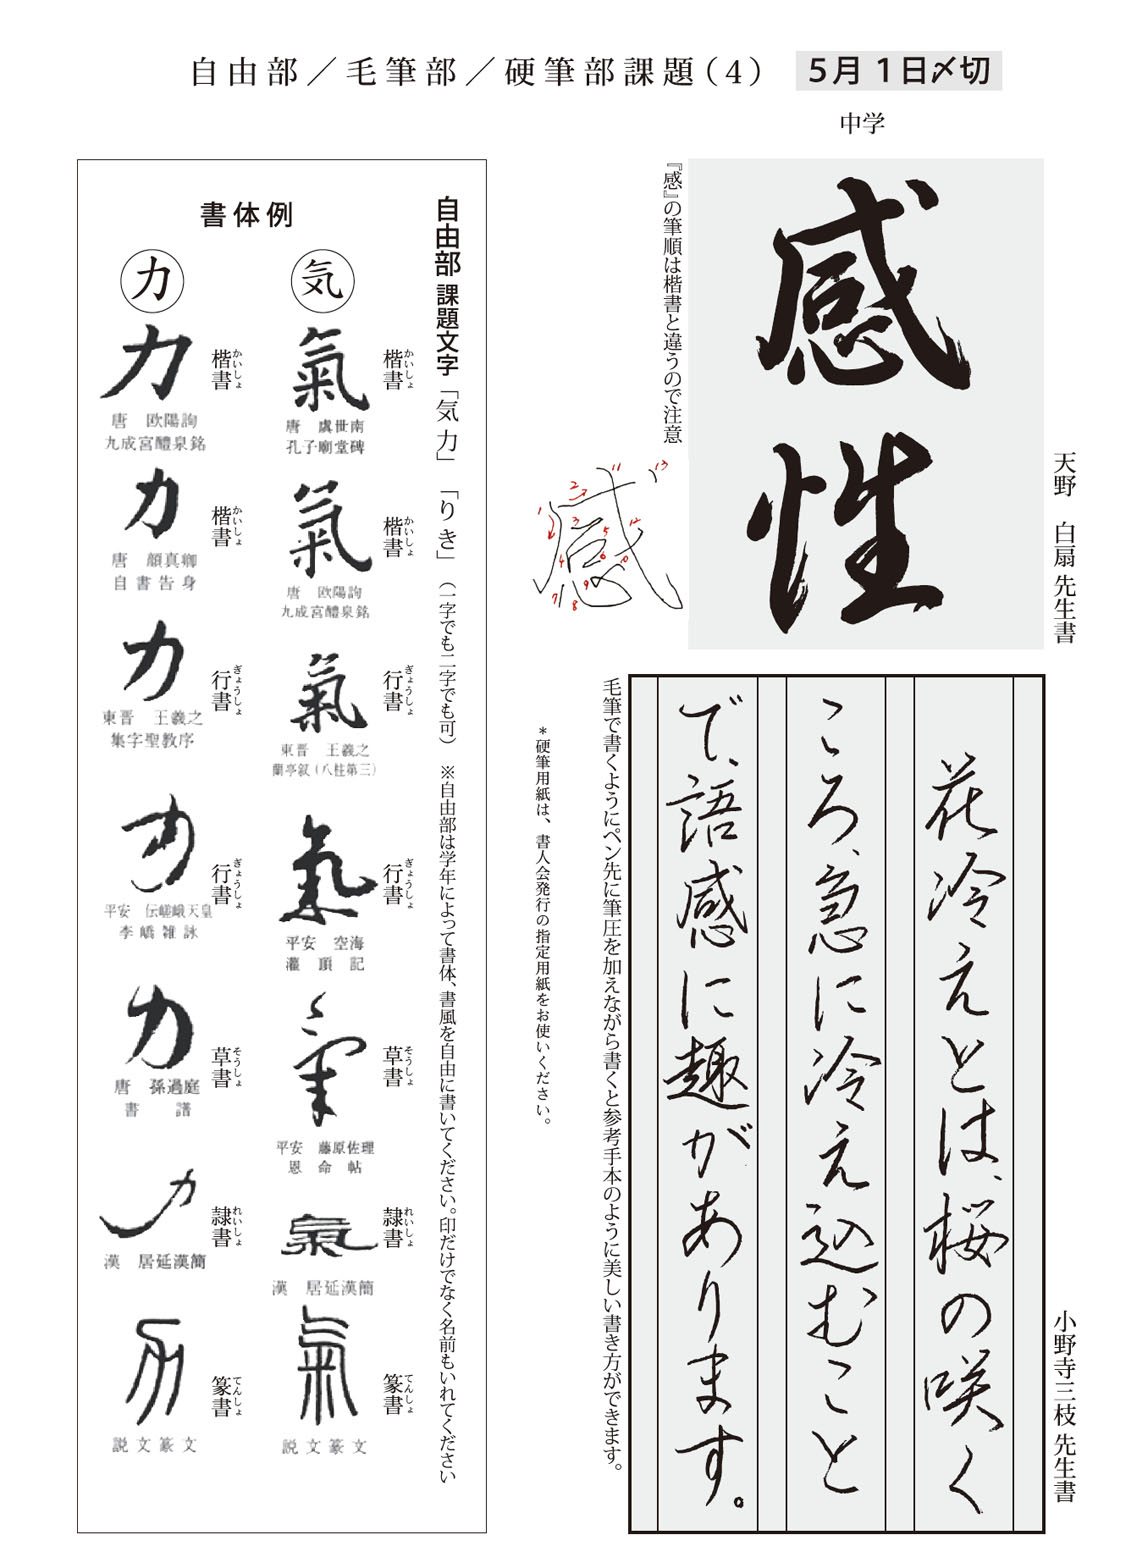 自由部／毛筆部／硬筆部課題（4）　5月1日〆切
中学
感性
天野　白扇 先生書
『感』の筆順は楷書と違うので注意
感
1 2 3 4 5 6 7 8 9 10 11 12 13
花冷えとは、桜の咲く
ころ、急に冷え込むこと
で、語感に趣があります。
小野寺三枝 先生書
毛筆で書くようにペン先に筆圧を加えながら書くと参考手本のように美しい書き方ができます。
＊硬筆用紙は、書人会発行の指定用紙をお使いください。
自由部 課題文字「気力」「りき」（一字でも二字でも可）　※自由部は学年によって書体、書風を自由に書いてください。印だけでなく名前もいれてください
書体例
気
氣
楷書
かいしょ
唐　虞世南
孔子廟堂碑
氣
楷書
かいしょ
唐　欧陽詢
九成宮醴泉銘
氣
行書
ぎょうしょ
東晋　王羲之
蘭亭叙（八柱第三）
氣
行書
ぎょうしょ
平安　空海
灌頂記
氣
草書
そうしょ
平安　藤原佐理
恩命帖
氣
隷書
れいしょ
漢　居延漢簡
氣
篆書
てんしょ
説文篆文
力
力
楷書
かいしょ
唐　欧陽詢
九成宮醴泉銘
力
楷書
かいしょ
唐　顔真卿
自書告身
力
行書
ぎょうしょ
東晋　王羲之
集字聖教序
力
行書
ぎょうしょ
平安　伝嵯峨天皇
李嶠雑詠
力
草書
そうしょ
唐　孫過庭
書譜
力
隷書
れいしょ
漢　居延漢簡
力
篆書
てんしょ
説文篆文